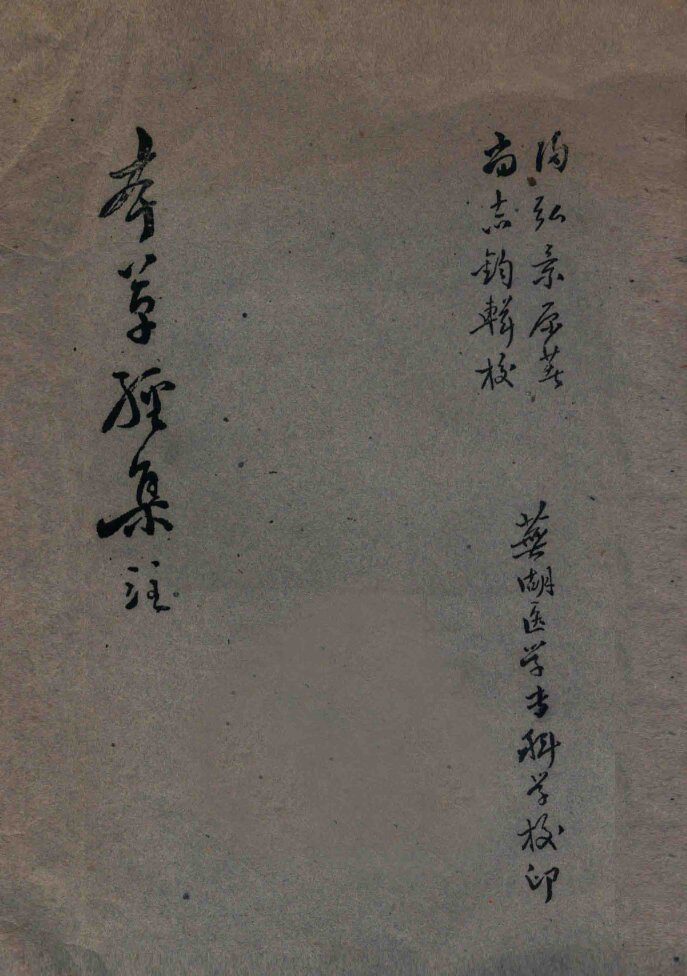 陶弘景原著
尚志钧輯校
蕪湖医学专科学校印
本草經集注